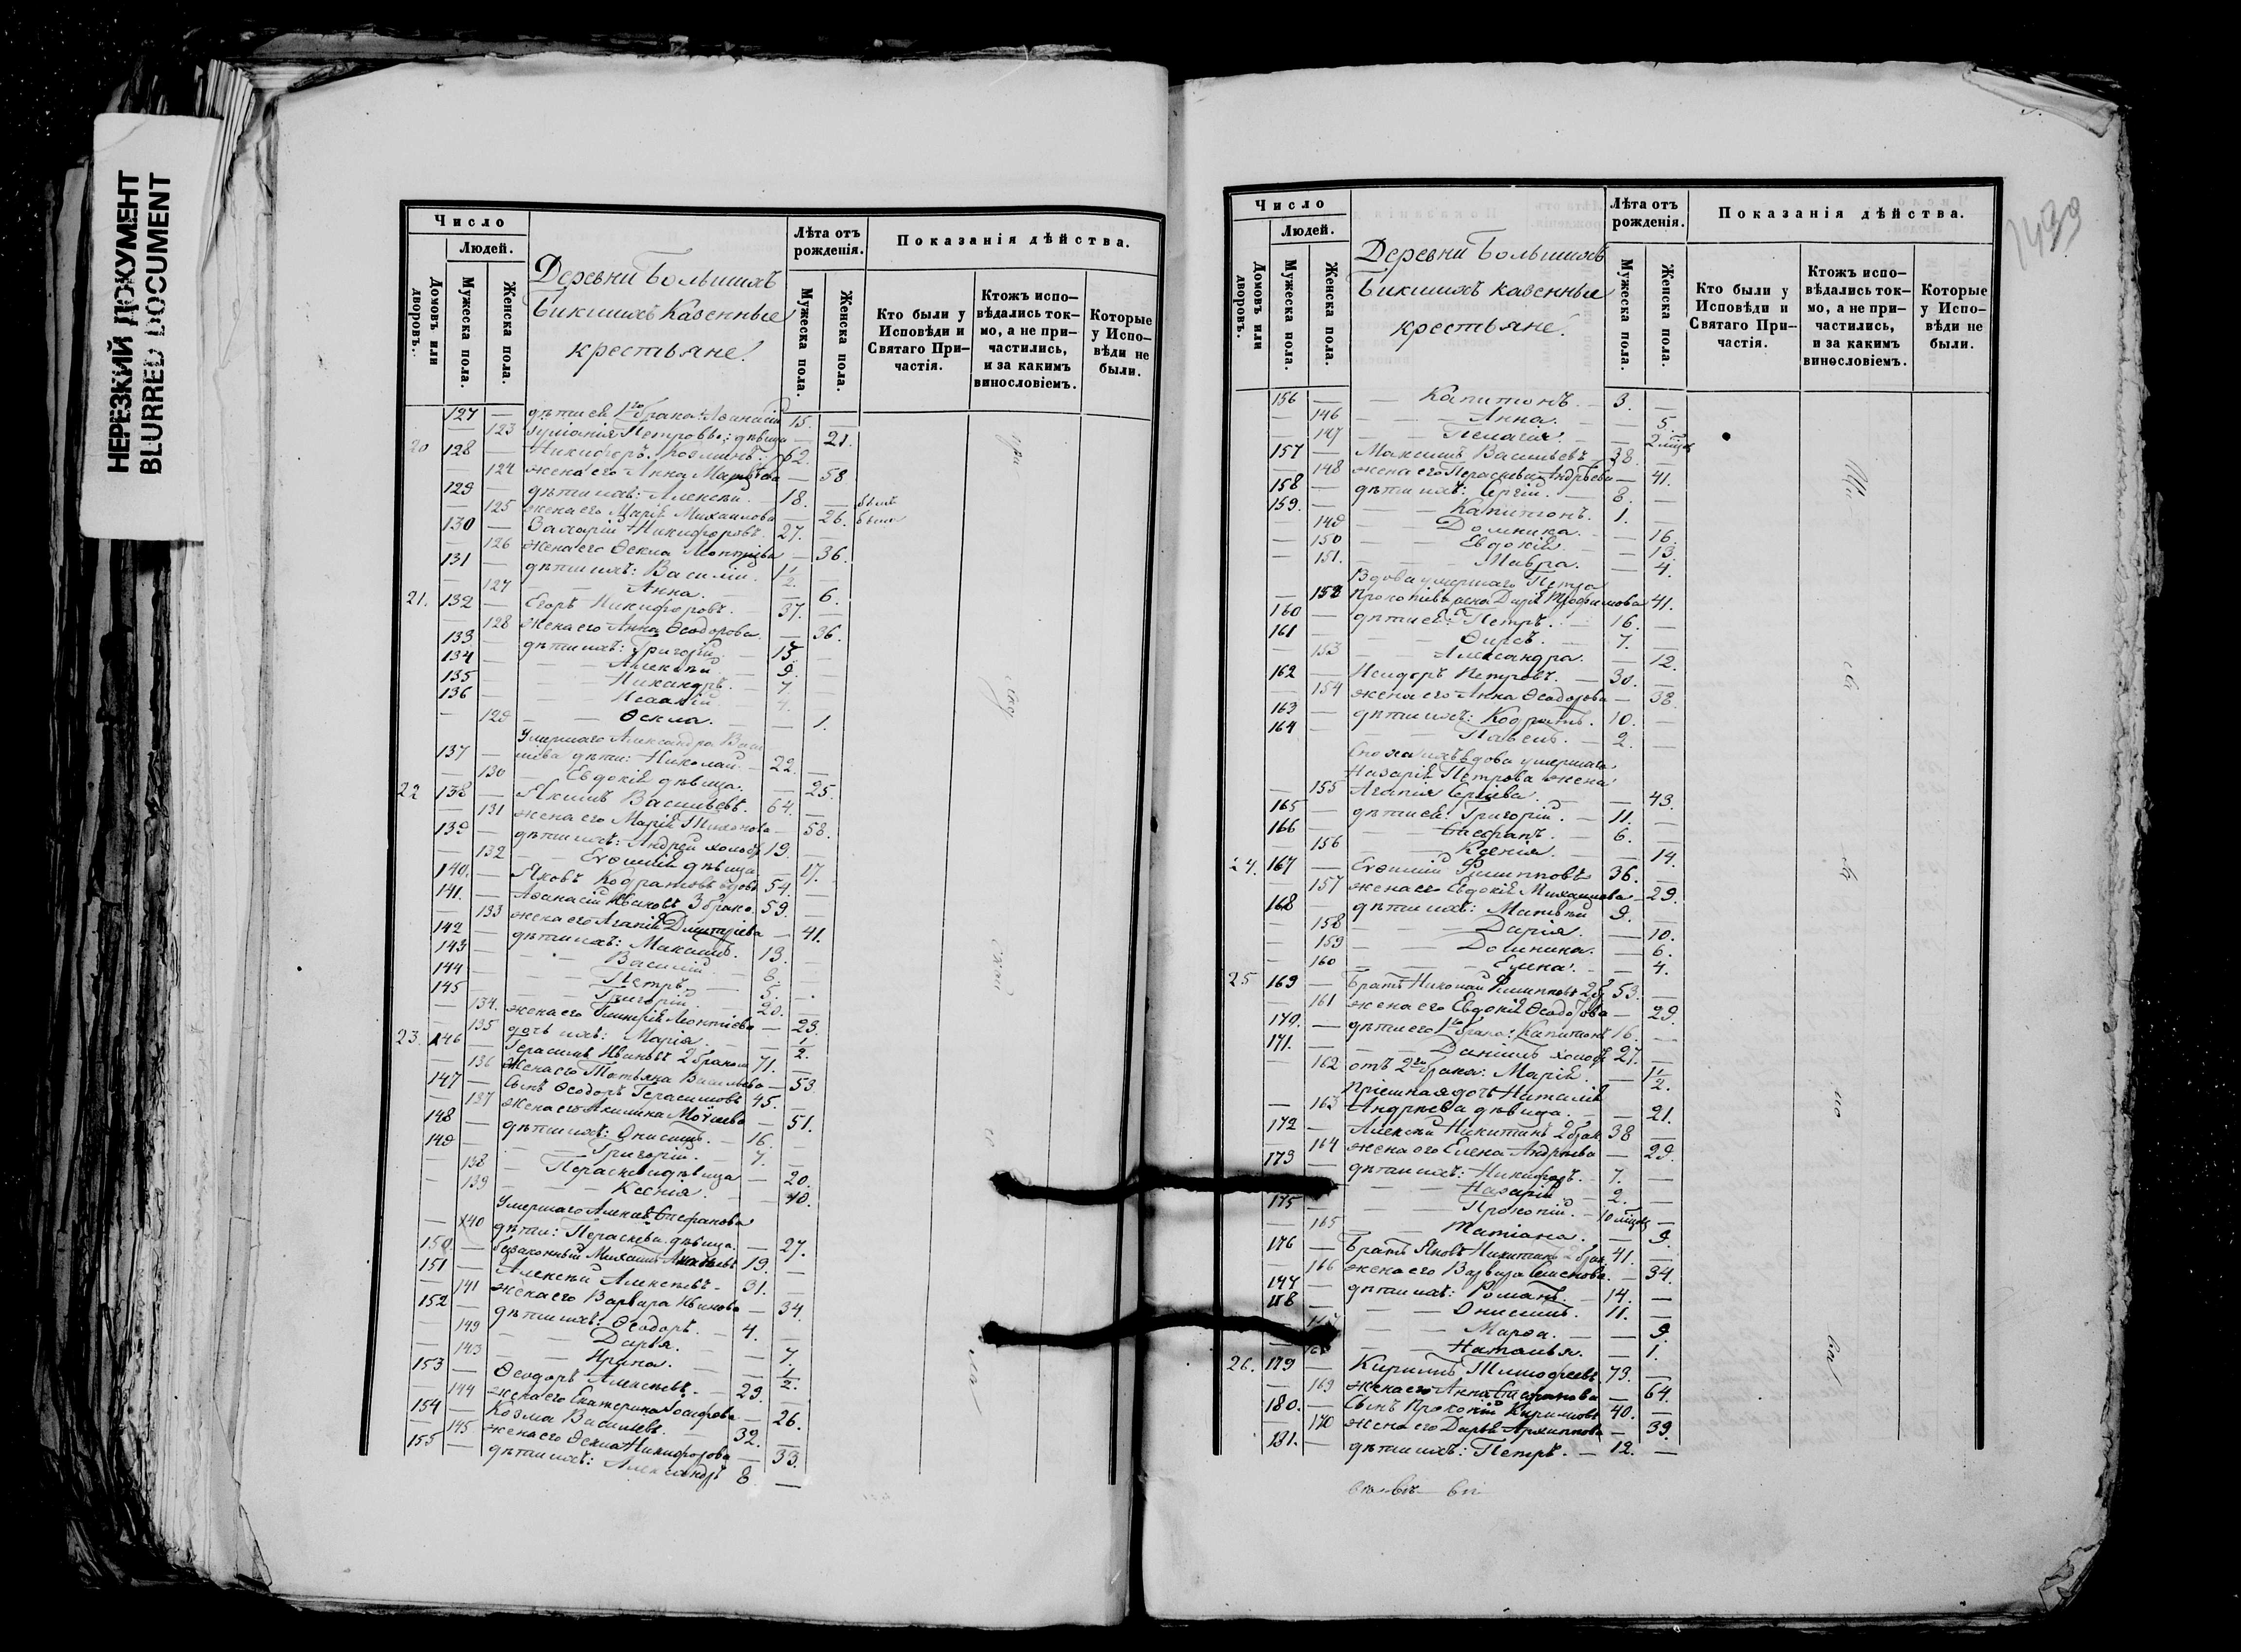 НЕРЕЗКИЙ ДОКУМЕНТ
BLURRED DOCUMENT
Число
Людей.
Домовъ или дворовъ.
Мужеска пола.
Женска пола.
Деревни Большихъ
Бикшихъ Казенные
крестьяне.
Лѣта отъ рожденія.
Мужеска пола.
Женска пола.
Показанія дѣйства.
Кто были у Исповѣди и Святаго Причастія.
Ктожъ исповѣдались токмо, а не причастились, и за какимъ винословіемъ.
Которые у Исповѣди не были.
127 — дѣти ея 1го брака: Аѳанасій 15. —
— 123 Петровы: дѣвица — 21.
20 128 — Никифоръ Козминъ 62. —
— 124 жена его Анна — 58
129 — дѣти ихъ: Алексѣй 18. — былъ
— 125 жена его Марія Михаилова — 26. была
130 — Захарій Никифоровъ 27.
— 126 жена его Ѳекла — 36.
131 — дѣти ихъ: Василій. 1½ —
— 127 — Анна. — 6.
21. 132 — Егоръ Никифоровъ. 37.
— 128 жена его Анна Ѳеодорова. — 36.
133 — дѣти ихъ: Григорій 15. —
134 — Алексѣй 9. —
135 — Никандръ. 7 —
136 — Исаакій 4. —
— 129 — Ѳекла. — 1.
Умершаго Александра
137 — дѣти: Николай 22. —
— 130 — Евдокія дѣвица. — 25.
22 138 — Якимъ Васильевъ. 64. —
— 131 жена его Марія Тихонова — 58.
139 — дѣти ихъ: Андрей холостъ 19. —
— 132 — Евѳимія дѣвица — 17.
140. — Яковъ Кодратовъ вдовъ 54. —
141. — Аѳанасій Ивановъ 3 брака. 59. —
— 133 жена его Агапія Дмитріева — 41.
142 — дѣти ихъ: Максимъ. 13. —
143 — Василій. 8. —
144 — Петръ 5. —
145 — Григорій. 20. —
— 134. жена его Гликерія Леонтіева — 23.
— 135 дочь ихъ: Марія. — ½.
23. 146 — Герасимъ Ивановъ 2 бракомъ 71. —
— 136 Жена его Татьяна Васильева — 53
147 — Сынъ Ѳеодоръ Герасимовъ 45. —
— 137 жена его Акилина Моѵсеева — 51.
148 — дѣти ихъ: Онисимъ. 16. —
149 — Григорій. 7. —
— 138 — Параскева дѣвица — 20.
— 139 — Ксенія. — 10.
Умершаго Алексѣя Стефанова
— 140 дѣти: Параскева дѣвица. — 27.
150. — беззаконный Михаилъ 19. —
151 — Алексѣй Алексѣевъ. 31. —
— 141 жена его Варвара Иванова — 34.
152 — дѣти ихъ: Ѳеодоръ. 4. —
— 149 — Дарья. — 7.
— 143 — Ирина. — ½.
153 — Ѳеодоръ Алексѣевъ. 29. —
— 144 жена его Екатерина Іосифова — 26.
154 — Козма Васильевъ. 32. —
— 145 жена его Ѳекла Никифорова — 33.
155 — дѣти ихъ: Александръ 8 —
Число
Людей.
Домовъ или дворовъ.
Мужеска пола.
Женска пола.
Деревни Большихъ
Бикшихъ казенные
крестьяне.
Лѣта отъ рожденія.
Мужеска пола.
Женска пола.
Показанія дѣйства.
Кто были у Исповѣди и Святаго Причастія.
Ктожъ исповѣдались токмо, а не причастились, и за какимъ винословіемъ.
Которые у Исповѣди не были.
156 — Капитонъ. 3. —
— 146 — Анна. — 5.
— 147 — Пелагія. — 2 мѣсяц
157 — Максимъ Васильевъ 38. —
— 148 жена его Параскева Андрѣева — 41.
158 — дѣти ихъ: Сергій. 8. —
159. — Капитонъ. 1. —
— 149 — Домника. — 16.
— 150 — Евдокія. — 13.
— 151. — Мавра. — 4.
Вдова умершаго Петра
— 152 Прокопіева жена Дарія Трофимова 41.
160 — дѣти ея: Петръ. 16. —
161 — Ѳирсъ. 7. —
— 153 — Александра. — 12.
162 — Исидоръ Петровъ. 30. —
— 154 жена его Анна Ѳеодорова — 38.
163 — дѣти ихъ: Кодратъ. 10. —
164 — Павелъ. 2. —
Сноха ихъ вдова умершаго
Назарія Петрова жена
— 155 Агапія Сергіева. — 43.
165 — дѣти ея: Григорій. 11. —
166 — Стефанъ. 6. —
— 156 — Ксенія. — 14.
24. 167 — Евѳимій Филипповъ 36. —
— 157 жена его Евдокія Михаилова — 29.
168 — дѣти ихъ: Матѳей 9. —
— 158 — Дарія. — 10.
— 159 — Домника. — 6.
— 160 — Елена. — 4.
25 169 — Братъ Николай Филипповъ 2 б. 53. —
— 161 жена его Евдокія Ѳеодотова — 29.
170. — дѣти его 1го брака: Капитонъ 16. —
171. — Даніилъ холостъ 27. —
— 162 отъ 2го брака: Марія. — 1½.
Пріемная дочь Наталія
— 163 Андрѣева дѣвица. — 21.
172 — Алексѣй Никитинъ 2 брак. 38 —
— 164 жена его Елена Андрѣева — 29.
173 — дѣти ихъ: Никифоръ. 7. —
— Назарій 2. —
175 — Прокопій. 10 мѣсяц —
— 165 — Татіана. — 9.
176 — Братъ Яковъ Никитинъ 2 брак 41. —
— 166 жена его Варвара Семенова. — 34.
177 — дѣти ихъ: Романъ. 14. —
178 — Онисимъ. 11. —
— Марѳа. — 9.
— Наталья. — 1.
26. 179 — Кириллъ Тимофеевъ 73. —
— 169 жена его Анна Стефанова — 64.
180. — Сынъ Прокопій Кирилловъ 40. —
— 170 жена его Дарья Архиппова — 39.
181. — дѣти ихъ: Петръ. 12. —